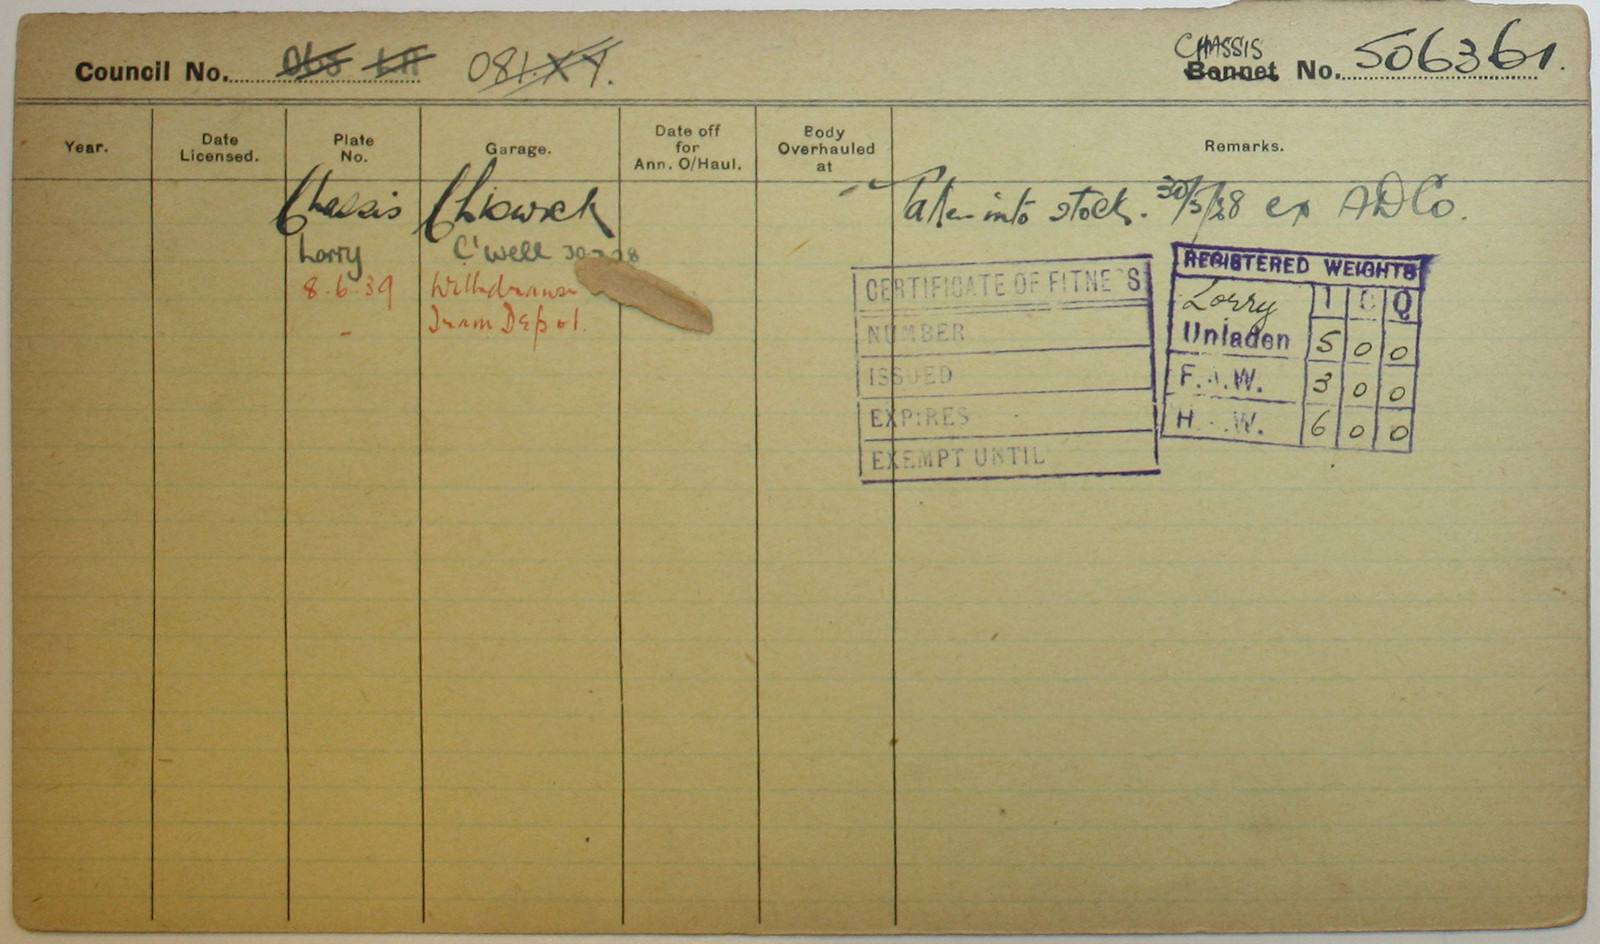 Council No. 081.XT.
CHASSIS
Bonnet No. 506361.
Year.
Date Licensed.
Plate No.
Garage.
Date off for Ann. O/Haul.
Body Overhauled at
Remarks.
Chassis Chiswick Taken into stock. 30/5/28 ex ADCo.
Lorry C'well 30 28
8.6.39 Withdrawn
Tram Depot.
CERTIFICATE OF FITNESS
NUMBER
ISSUED
EXPIRES
EXEMPT UNTIL
REGISTERED WEIGHTS
Lorry T C Q
Unladen 5 0 0
F. W. 3 0 0
H W. 6 0 0